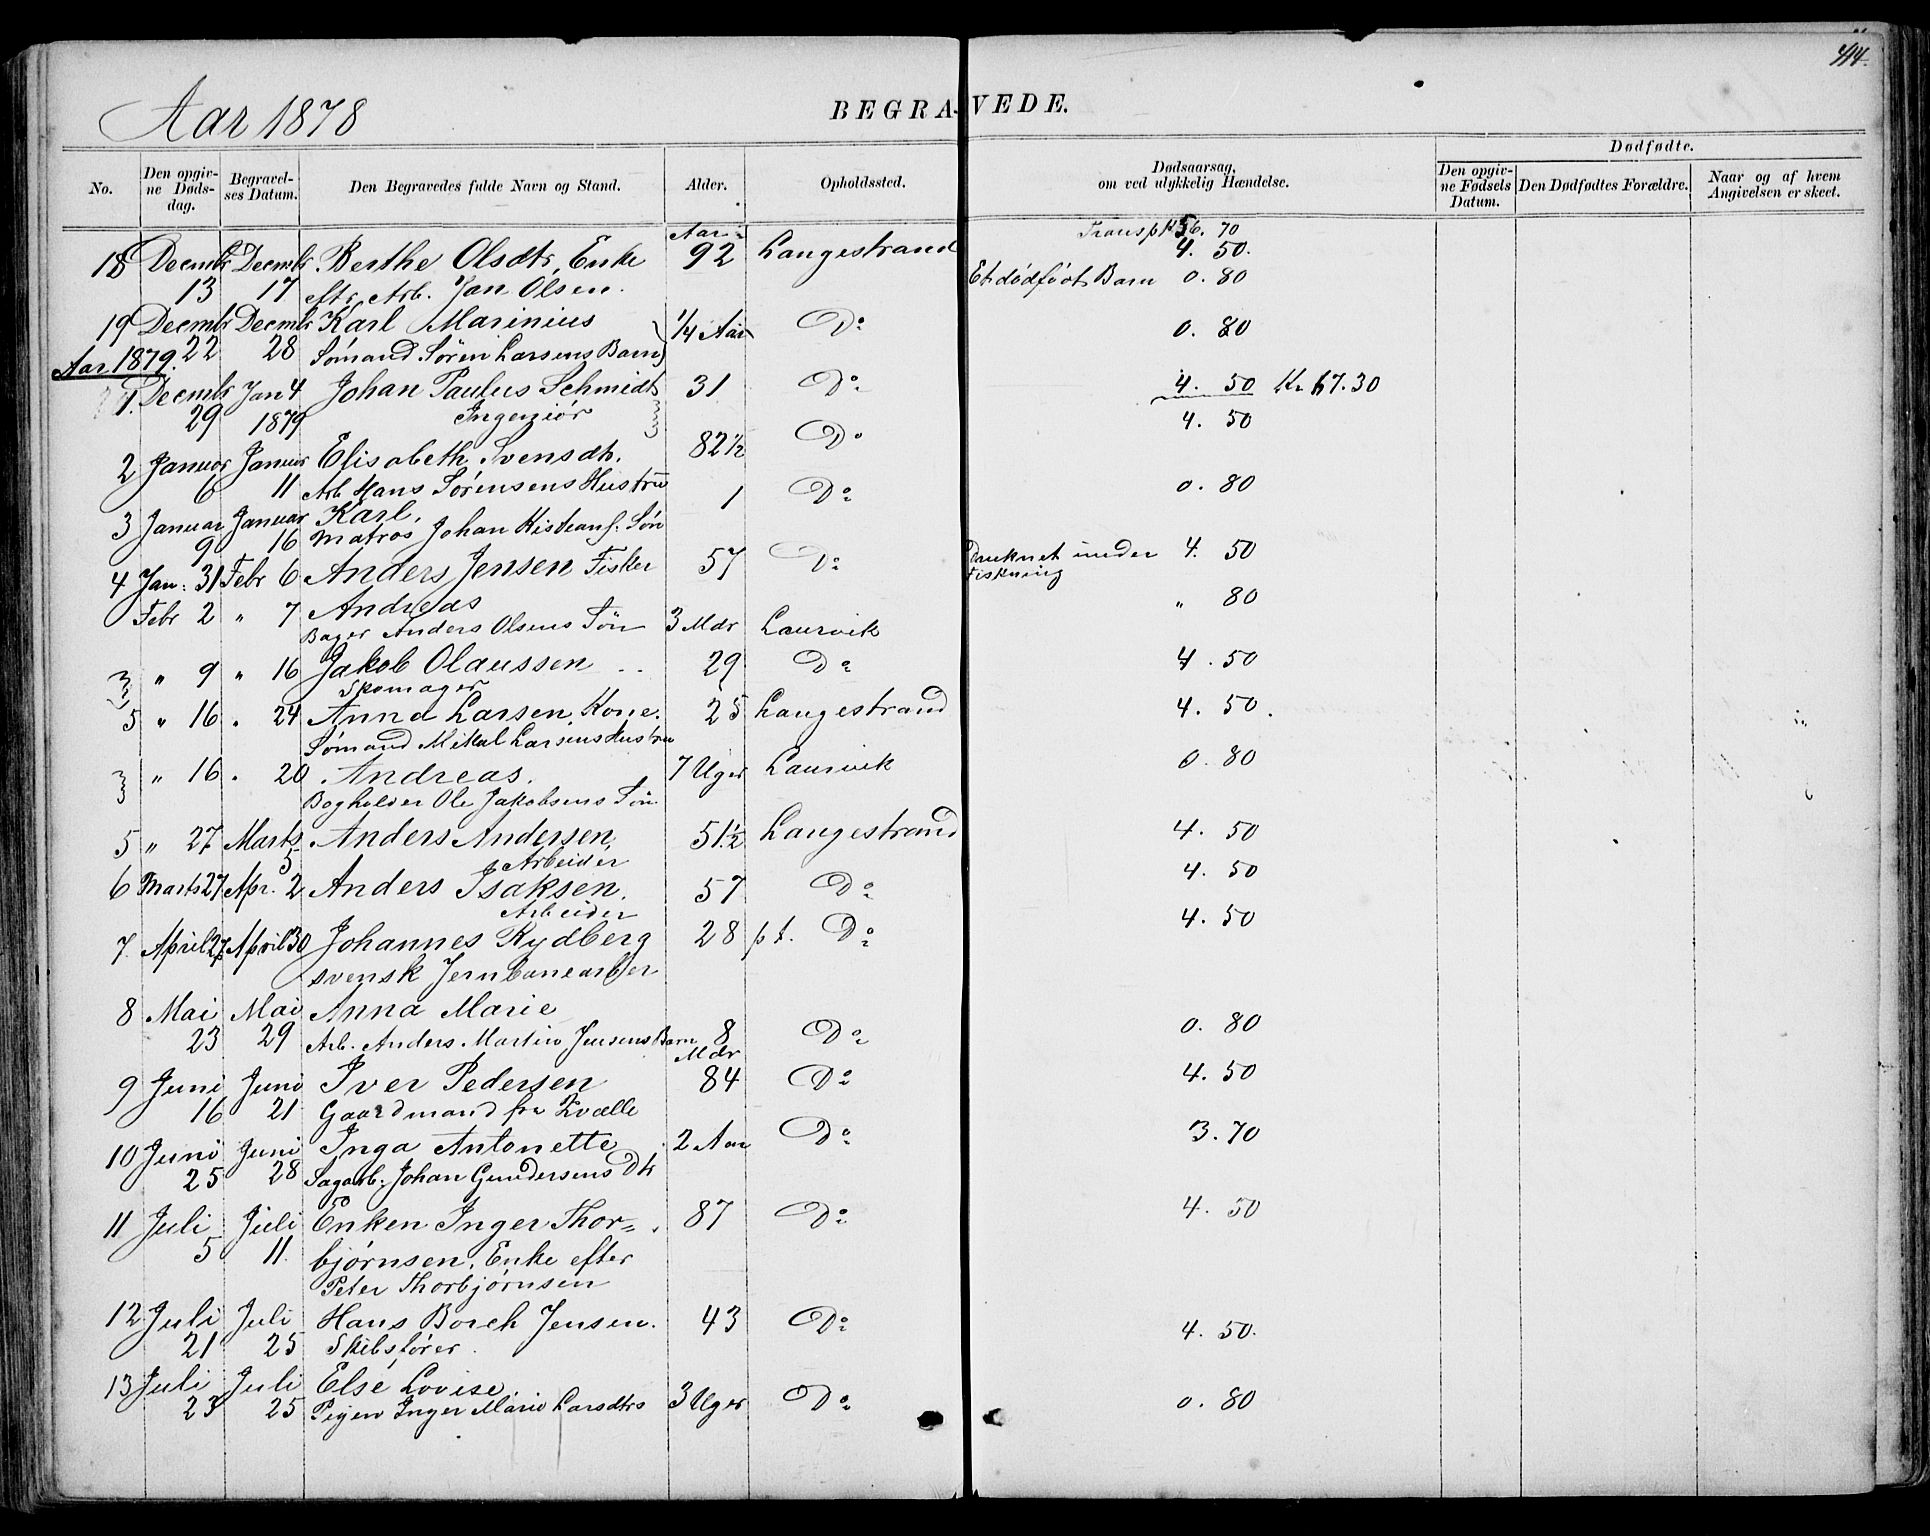 414.
Aar 1878
BEGRAVEDE.
No. Den opgivne Dødsdag. Begravelses Datum. Den Begravedes fulde Navn og Stand. Alder. Opholdssted. Dødsaarsag, om ved ulykkelig Hændelse. Dødfødte. Den opgivne Fødsels Datum. Den Dødfødtes Forældre. Naar og af hvem Angivelsen er skeet.
Aar Transp. 56. 70
18 Decmbr Decmbr Berthe Olsdtr, Enke 92 Langestrand 4. 50.
13 17 eftr. Arb. Jan Olsen. Et dødfødt Barn 0. 80
19 Decmbr Decmbr Karl Marinius 1/4 Aar Do 0. 80
22 28 Sømand Sören Larsens Barn
Aar 1879.
1. Decmbr Jan 4 Johan Paulus Schmidt 31 Do 4. 50 Kr 67.30
29 1879 Ingeniør
2 Januar Januar Elisabeth Svensdtr. 82 1/2 Do 4. 50
6 11 Arb Hans Sørensens Hustru
3 Januar Januar Karl, 1 Do 0. 80
9 16 Matros Johan Kristians. Søn
4 Jan: 31 Febr 6 Anders Jensen Fisker 57 Do Druknet under 4. 50
Fiskning
Febr 2 " 7 Andreas 3 Mdr Laurvik " 80
Bager Anders Olsens Søn
" 9 " 16 Jakob Olaussen 29 Do 4. 50
Skomager
5 " 16 " 24 Anna Larsen, Kone. 25 Langestrand 4. 50.
Sømand Mikal Larsens Hustru
" 16 " 20 Andreas. 7 Uger Laurvik 0. 80
Bogholder Ole Jakobsens Søn
5 " 27 Marts Anders Andersen, 51 1/2 Langestrand 4. 50
5 Arbeider
6 Marts 27 Apr. 2 Anders Isaksen. 57 Do 4. 50
Arbeider
7. April 27 April 30 Johannes Rydberg 28 p t. Do 4. 50
svensk Jernbanearber
8 Mai Mai Anna Marie
23 29 Arb. Anders Martin Jensens Barn 8 Mdr Do 0. 80
9 Juni Juni Iver Pedersen 84 Do 4. 50
16 21 Gaardmand fra Kvælle
10 Juni Juni Inga Antonette 2 Aar Do 3. 70
25 28 Sagarb. Johan Gundersens Dtr
11 Juli Juli Enken Inger Thor= 87 Do 4. 50
5 11. bjørnsen, Enke efter
Peter Thorbjørnsen
12 Juli Juli Hans Borch Jensen. 43 Do 4. 50.
21 25 Skibsfører
13 Juli Juli Else Lovise 3 Uger Do 0. 80
23 25 Pigen Inger Marie Larsdtrs